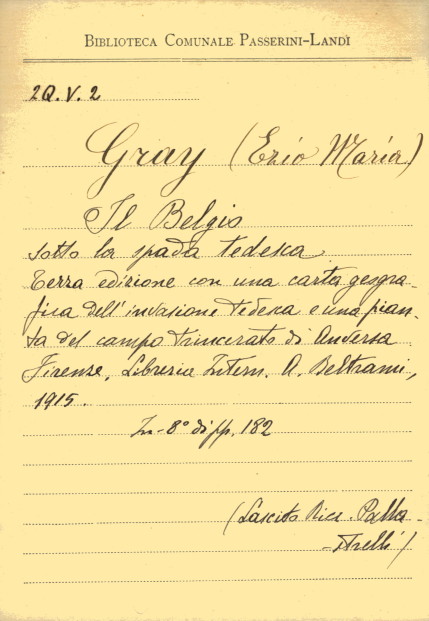 BIBLIOTECA COMUNALE PASSERINI-LANDI
2Q.V.2
Gray (Ezio Maria)
Il Belgio
sotto la spada tedesca
Terza edizione con una carta geogra-
fica dell'invasione tedesca e una pian-
ta del campo trincerato di Anversa
Firenze, Libreria Intern. A. Beltrami,
1915.
In-8° di pp. 182
(Lascito Ricc. Palla-
-strelli)